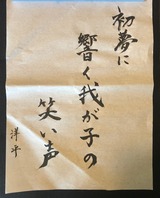 初夢に
響く我が子の
笑い声
洋平